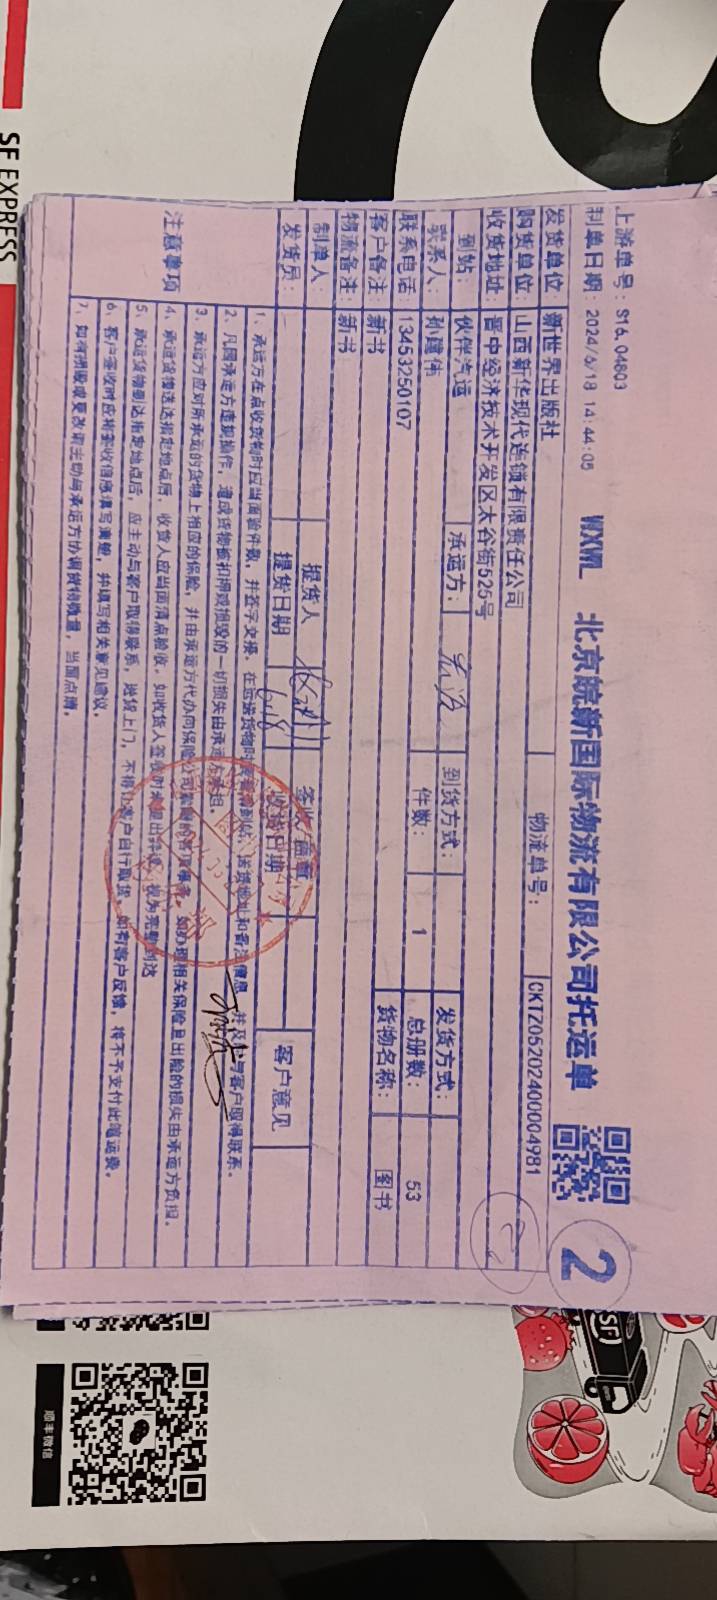 SF EXPRESS
上游单号：S16.04803
制单日期：2024/6/18 14:44:05
WXWL 北京皖新国际物流有限公司托运单
2
发货单位：新世界出版社 物流单号：CKTZ05202400004981
购货单位：山西新华现代连锁有限责任公司
收货地址：晋中经济技术开发区太谷街525号
到站：伙伴汽运 承运方： 到货方式： 发货方式：
联系人：孙建伟 件数：1 总册数：53
联系电话：13453250107 货物名称：图书
客户备注：新书
物流备注：新书
制单人： 提货人 签收/盖章 客户意见
发货员： 提货日期 6.18 收货日期
注意事项
1、承运方在点收货物时应当面验件数，并签字交接。在运送货物时 到站、送货地址和备注信息，并及时与客户取得联系。
2、凡因承运方违规操作，造成货物 损毁的一切损失由承运方承担。
3、承运方应对所承运的货物上相应的保险，并由承运方代办向保险公司 如办理相关保险且出险的损失由承运方负担。
4、承运货物送达指定地点后，收货人应当面清点验收，如收货人签收时未提出异议，视为完整到达
5、承运货物到达指定地点后，应主动与客户取得联系，送货上门，不得让客户自行取货，如有客户反馈，将不予支付此笔运费。
6、客户签收时应将签收信息填写清楚，并填写相关意见建议。
7、如有 更改请主动与承运方协调货物数量，当面点清。
SF
顺丰微信